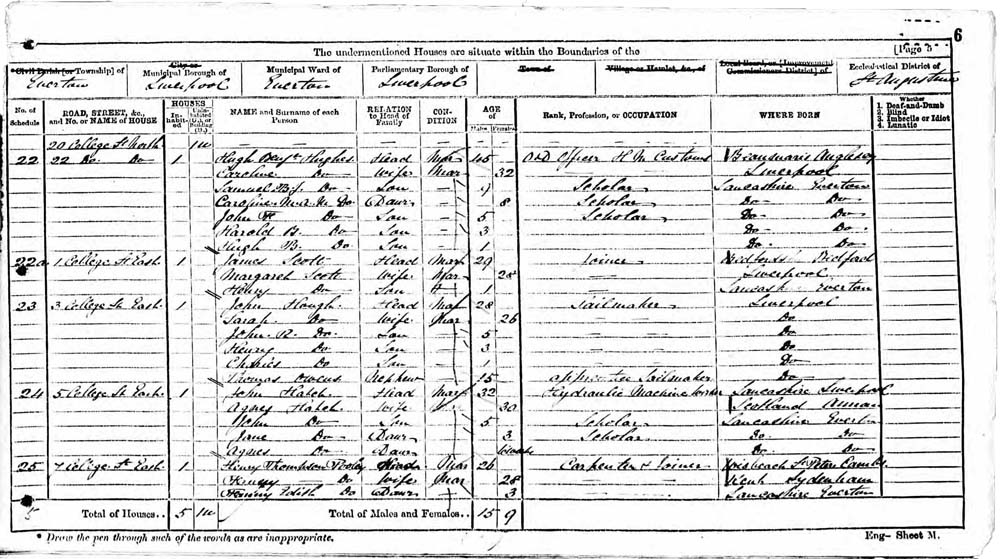 6
[Page 5
The undermentioned Houses are situate within the Boundaries of the
Civil Parish [or Township] of
City or Municipal Borough of
Municipal Ward of
Parliamentary Borough of
Town of
Village or Hamlet, &c., of
Local Board, or [Improvement Commissioners District] of
Ecclesiastical District of
Everton Liverpool Everton Liverpool St Augustine
No. of Schedule
ROAD, STREET, &c., and No. or NAME of HOUSE
HOUSES
Inhabited
Uninhabited (U.), or Building (B.)
NAME and Surname of each Person
RELATION to Head of Family
CONDITION
AGE of
Males Females
Rank, Profession, or OCCUPATION
WHERE BORN
Whether
1. Deaf-and-Dumb
2. Blind
3. Imbecile or Idiot
4. Lunatic
20 College St North
22 22 Do Do 1 Hugh Hughes Head Mar 45 Officer H M Customs Anglesey
Caroline Do Wife Mar 32 Liverpool
Samuel Do Son 9 Scholar Lancashire Everton
Do Daur 8 Scholar Do Do
John Do Son 5 Scholar Do Do
Harold B. Do Son 3 Do Do
Hugh B. Do Son 1 Do Do
22a 1 College St East 1 James Scott Head Mar 29 Joiner Bidford
Margaret Scott Wife Mar 28 Liverpool
Henry Do Son 1 Lancash Everton
23 3 College St East 1 John Hough Head Mar 28 Sailmaker Liverpool
Sarah Do Wife Mar 26 Do
John R. Do Son 5 Do
Henry Do Son 3 Do
Charles Do Son 1 Do
Thomas Owens Nephew 15 Sailmaker Do
24 5 College St East 1 John Hatch Head Mar 32 Hydraulic Machine Lancashire Liverpool
Agnes Hatch Wife 30 Scotland Annan
John Do Son 5 Scholar Lancashire Everton
Jane Do Daur 3 Scholar Do Do
Agnes Do Daur Do Do
25 7 College St East 1 Henry Thompson Head Mar 26 Carpenter & Joiner Wisbeach St Peters Cambs
Do Wife Mar 28 Kent Sydenham
Edith Do Daur 3 Lancashire Everton
5 Total of Houses.. 5 Total of Males and Females.. 15 9
* Draw the pen through such of the words as are inappropriate.
Eng- Sheet M.